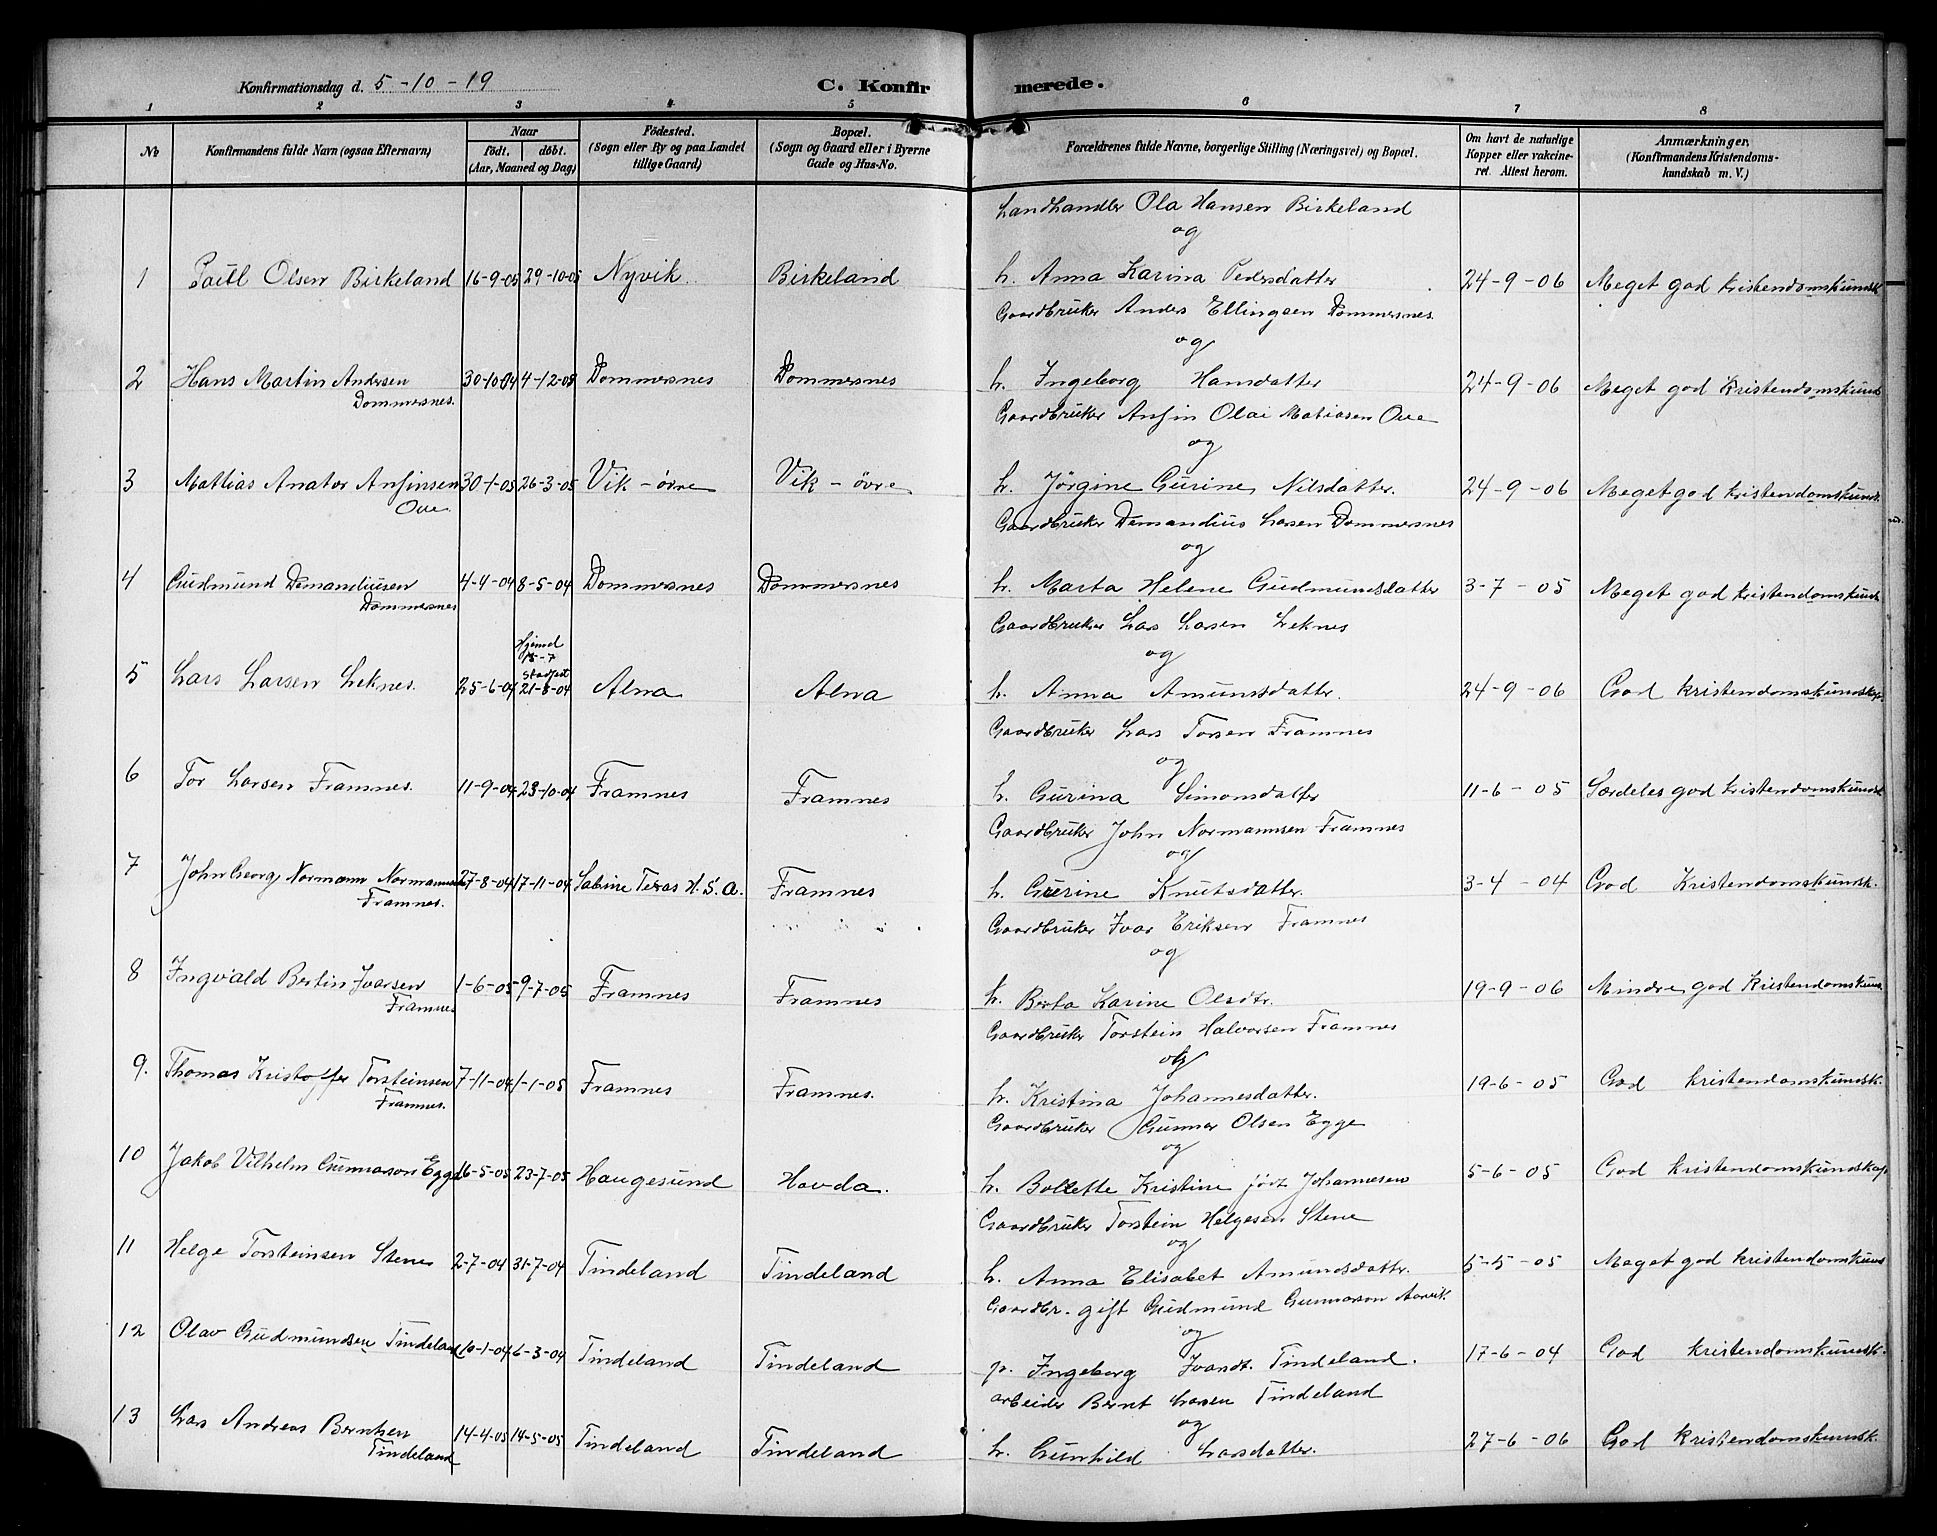 Konfirmationsdag d. 5-10-19
C. Konfirmerede.
1 2 3 4 5 6 7 8
No
Konfirmandens fulde Navn (ogsaa Efternavn)
Naar
født. døbt.
(Aar, Maaned og Dag)
Fødested.
(Sogn eller By og paa Landet
tillige Gaard)
Bopæl.
(Sogn og Gaard eller i Byerne
Gade og Hus-No.
Forældrenes fulde Navne, borgerlige Stilling (Næringsvei) og Bopæl.
Om havt de naturlige
Kopper eller vakcine-
ret. Attest herom.
Anmærkninger,
(Konfirmandens Kristendoms-
kundskab m. V.)
Landhandler Ola Hansen Birkeland
og
1 Paul Olsen Birkeland 16-9-05 29-10-05 Nyvik Birkeland h. Anna Karina Pedersdatter 24-9-06 Meget god kristendomskundsk
Gaardbruker Anders Ellingsen Dommersnes.
og
2 Hans Martin Andersen 30-10-04 4-12-05 Dommersnes Dommersnes h. Ingeborg Hansdatter 24-9-06 Meget god Kristendomskund
Dommersnes.
Gaardbruker Anfin Olai Matiasen Ove
og
3 Mattias Anator Anfinsen 30-1-05 26-3-05 Vik-övre Vik-övre h. Jörgine Gurine Nilsdatter. 24-9-06 Meget god kristendomskunds.
Ove.
Gaardbruker Demandius Larsen Dommersnes
og
4 Gudmund Demandiusen 4-4-04 8-5-04 Dommersnes Dommersnes h. Marta Helene Gudmundsdatter 3-7-05 Meget god kristendomskunds
Dommersnes
Gaardbruker Lars Larsen Leknes
og
Hjemd
15-7
stadfest
5 Lars Larsen Leknes. 25-6-04 21-8-04 Alna Alna h. Anna Amundsdatter. 24-9-06 God kristendomskundskap.
Gaardbruker Lars Torsen Framnes
og
6 Tor Larsen Framnes. 11-9-04 23-10-04 Framnes Framnes h. Gurina Simonsdatter 11-6-05 Særdeles god kristendomskundsk
Gaardbruker John Normannsen Framnes
og
7 John Georg Normann Normannsen 27-8-04 17-11-04 Sabine Texas U.S.A. Framnes h. Gurine Knutsdatter. 3-4-04 God Kristendomskundsk.
Framnes.
Gaardbruker Ivar Eriksen Framnes
og
8 Ingvald Bertin Ivarsen 1-6-05 9-7-05 Framnes Framnes h. Berta Karine Olsdtr. 19-9-06 Mindre god Kristendomskuns
Framnes
Gaardbruker Torstein Halvorsen Framnes
og
9. Thomas Kristoffer Torsteinsen 7-11-04 1-1-05 Framnes Framnes. h. Kristina Johannesdatter. 19-6-05 God kristendomskundsk.
Framnes.
Gaardbruker Gunnar Olsen Egge
og
10 Jakob Vilhelm Gunnarson Egge 16-5-05 23-7-05 Haugesund Hovda. h. Bollette Kristine født Johannesen 5-6-05 God kristendomskundskap
Gaardbruker Torstein Helgesen Stene
og
11 Helge Torsteinsen Stene 2-7-04 31-7-04 Tindeland Tindeland h. Anna Elisabet Amundsdattr. 5-5-05 Meget god kristendomskuns
Gaardbr. gift Gudmund Gunnarson Aarvik
og
12 Olav Gudmundsen Tindeland 16-1-04 6-3-04 Tindeland Tindeland p. Ingeborg Ivarsdt. Tindeland. 17-6-04 God kristendomskundsk.
arbeider Bernt Larsen Tindeland
og
13 Lars Andreas Berntsen 14-4-05 14-5-05 Tindeland Tindeland h. Gunhild Larsdatter. 27-6-06 God kristendomskundsk.
Tindeland